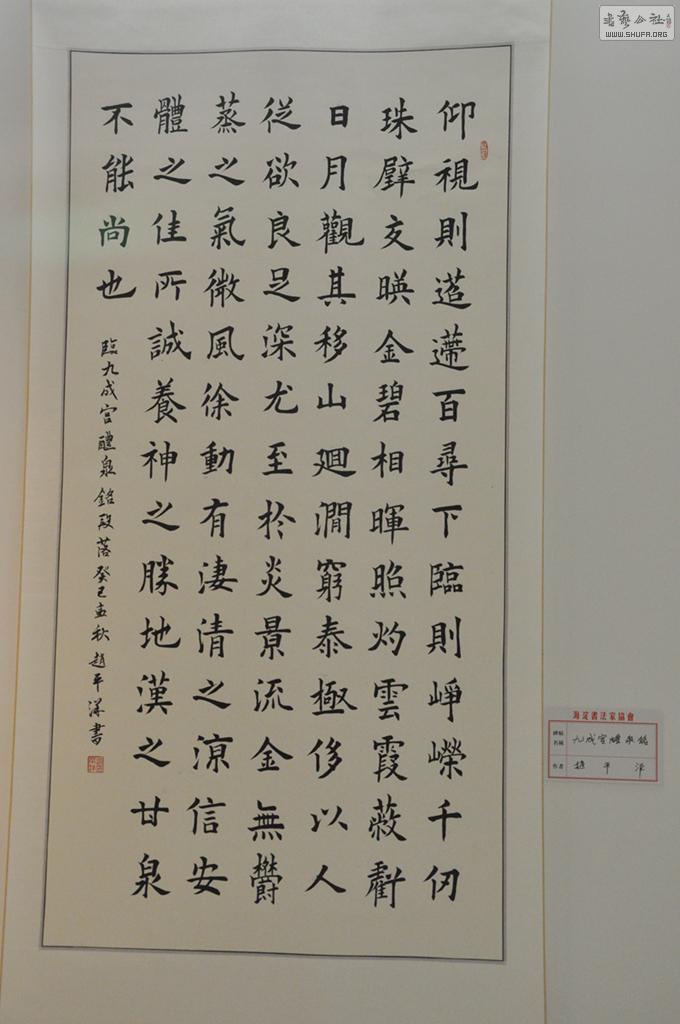 仰視則迢遰百尋下臨則崢嶸千仞
珠壁交暎金碧相暉照灼雲霞蔽虧
日月觀其移山廻澗窮泰極侈以人
從欲良足深尤至於炎景流金無欝
蒸之氣微風徐動有淒清之凉信安
體之佳所誠養神之勝地漢之甘泉
不能尚也
臨九成宮醴泉銘段落癸巳孟秋趙平洋書
海淀書法家協會
九成宮醴泉銘
作者 趙平洋
書藝公社
WWW.SHUFA.ORG